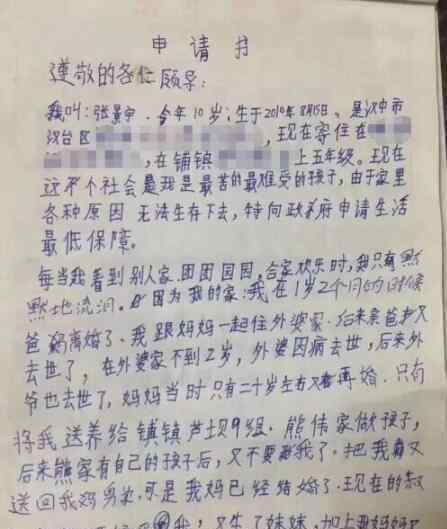 申请书
尊敬的各位领导:
我叫:张景宇.今年10岁;生于2010年8月15日.是汉中市
汉台区 ,现在寄住在
,在铺镇 上五年级。现在
这个社会是我是最苦的最难受的孩子,由于家里
各种原因 无法生存下去,特向政府申请生活
最低保障。
每当我看到别人家.团团园园,合家欢乐时,我只有默
默地流泪。因为我的家:我在1岁2个月的时候
爸妈离婚了、我跟妈妈一起住外婆家.后来亲爸又
去世了,在外婆家不到2岁,外婆因病去世,后来外
爷也去世了,妈妈当时只有二十岁左右又再婚.只有
将我送养给铺镇芦坝9组.熊伟家做孩子,
后来熊家有自己的孩子后,又不要我了.把我又
送回我妈身边,可是我妈已经结婚了.现在的叔
我,又生了妹妹,加上我妈妈又